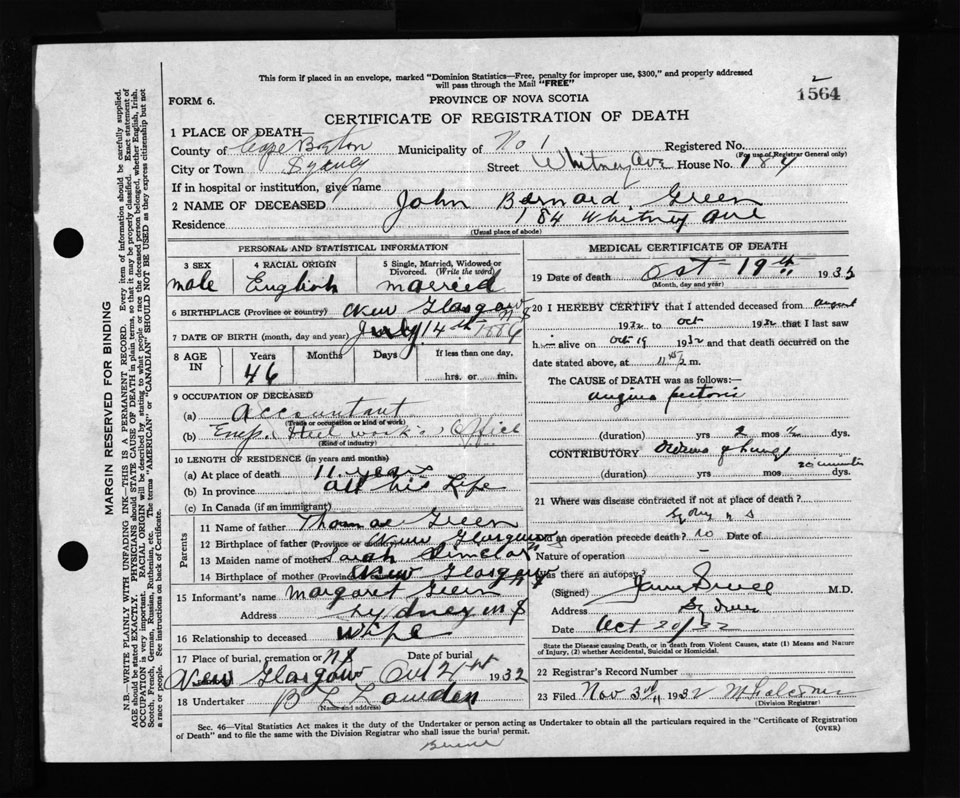 This form if placed in an envelope, marked "Dominion Statistics—Free, penalty for improper use, $300," and properly addressed
will pass through the Mail "FREE"
1564
FORM 6.
PROVINCE OF NOVA SCOTIA
CERTIFICATE OF REGISTRATION OF DEATH
1 PLACE OF DEATH—
County of Cape Breton Municipality of No 1 Registered No.
(For use of Registrar General only)
City or Town Sydney Street Whitney Ave House No. 184
If in hospital or institution, give name
2 NAME OF DECEASED John Bernard Green
Residence 184 Whitney Ave
(Usual place of abode)
PERSONAL AND STATISTICAL INFORMATION
3 SEX 4 RACIAL ORIGIN 5 Single, Married, Widowed or Divorced. (Write the word)
male English married
6 BIRTHPLACE (Province or country) New Glasgow N S
7 DATE OF BIRTH (month, day and year) July 14th 1886
8 AGE IN Years Months Days If less than one day,
46 hrs. or min.
9 OCCUPATION OF DECEASED
(a) Accountant
(Trade or occupation or kind of work)
(b) Emp. Steel works Office
(Kind of industry)
10 LENGTH OF RESIDENCE (in years and months)
(a) At place of death 11 years
(b) In province all his Life
(c) In Canada (if an immigrant)
Parents
11 Name of father Thomas Green
12 Birthplace of father (Province or country) New Glasgow
13 Maiden name of mother Sarah Sinclair
14 Birthplace of mother (Province New Glasgow
15 Informant's name Margaret Green
Address Sydney N S
16 Relationship to deceased Wife
17 Place of burial, cremation or N S Date of burial
New Glasgow Oct 21st 1932
18 Undertaker
(Name and address)
MEDICAL CERTIFICATE OF DEATH
19 Date of death Oct 19th 1932
(Month, day and year)
20 I HEREBY CERTIFY that I attended deceased from August
1932 to Oct 1932 that I last saw
h alive on Oct 19 1932 and that death occurred on the
date stated above, at m.
The CAUSE of DEATH was as follows:—
angina pectoris
(duration) yrs 2 mos dys.
CONTRIBUTORY
(duration) yrs. mos. 20 minutes dys.
21 Where was disease contracted if not at place of death?
Sydney N S
an operation precede death? no Date of
Nature of operation —
Was there an autopsy?
(Signed) M.D.
Address Sydney
Date Oct 20/32
State the Disease causing Death, or in death from Violent Causes, state (1) Means and Nature
of Injury, (2) whether Accidental, Suicidal or Homicidal.
22 Registrar's Record Number
23 Filed Nov 3rd 1932
(Division Registrar)
Sec. 46—Vital Statistics Act makes it the duty of the Undertaker or person acting as Undertaker to obtain all the particulars required in the "Certificate of Registration
of Death" and to file the same with the Division Registrar who shall issue the burial permit.
(OVER)
MARGIN RESERVED FOR BINDING
N.B.—WRITE PLAINLY WITH UNFADING INK—THIS IS A PERMANENT RECORD. Every item of information should be carefully supplied.
AGE should be stated EXACTLY. PHYSICIANS should STATE CAUSE OF DEATH in plain terms, so that it may be properly classified. Exact statement of
OCCUPATION is very important. RACIAL ORIGIN will be described by stating to what people or race the deceased person belonged, whether English, Irish,
Scotch, French, German, Russian, Ruthenian, etc. The terms "AMERICAN" or "CANADIAN" SHOULD NOT BE USED as they express citizenship but not
a race or people. See instructions on back of Certificate.